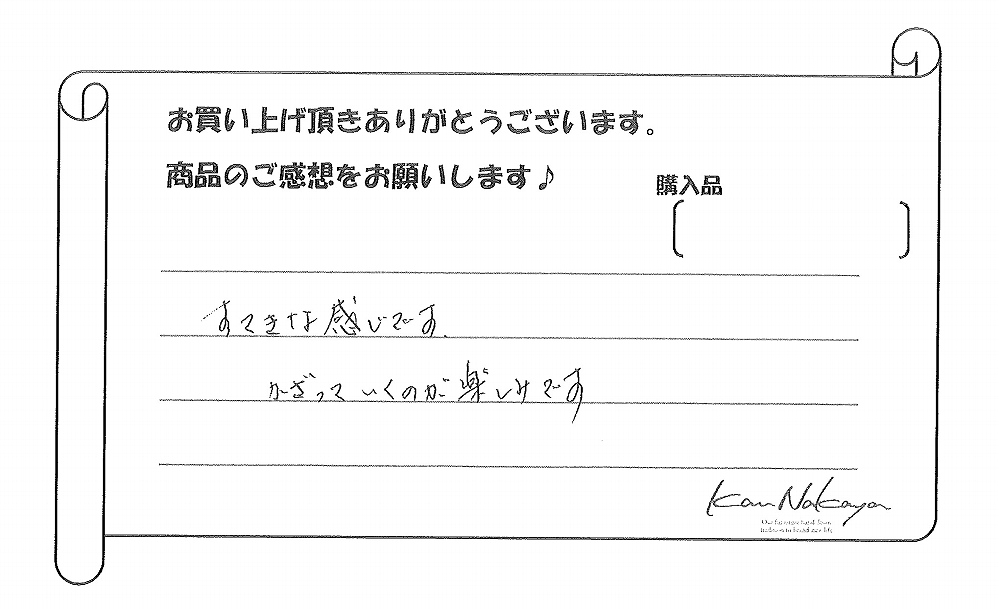 お買い上げ頂きありがとうございます。
商品のご感想をお願いします♪
購入品
すてきな感じです.
かざっていくのが楽しみです
Kan Nakaya